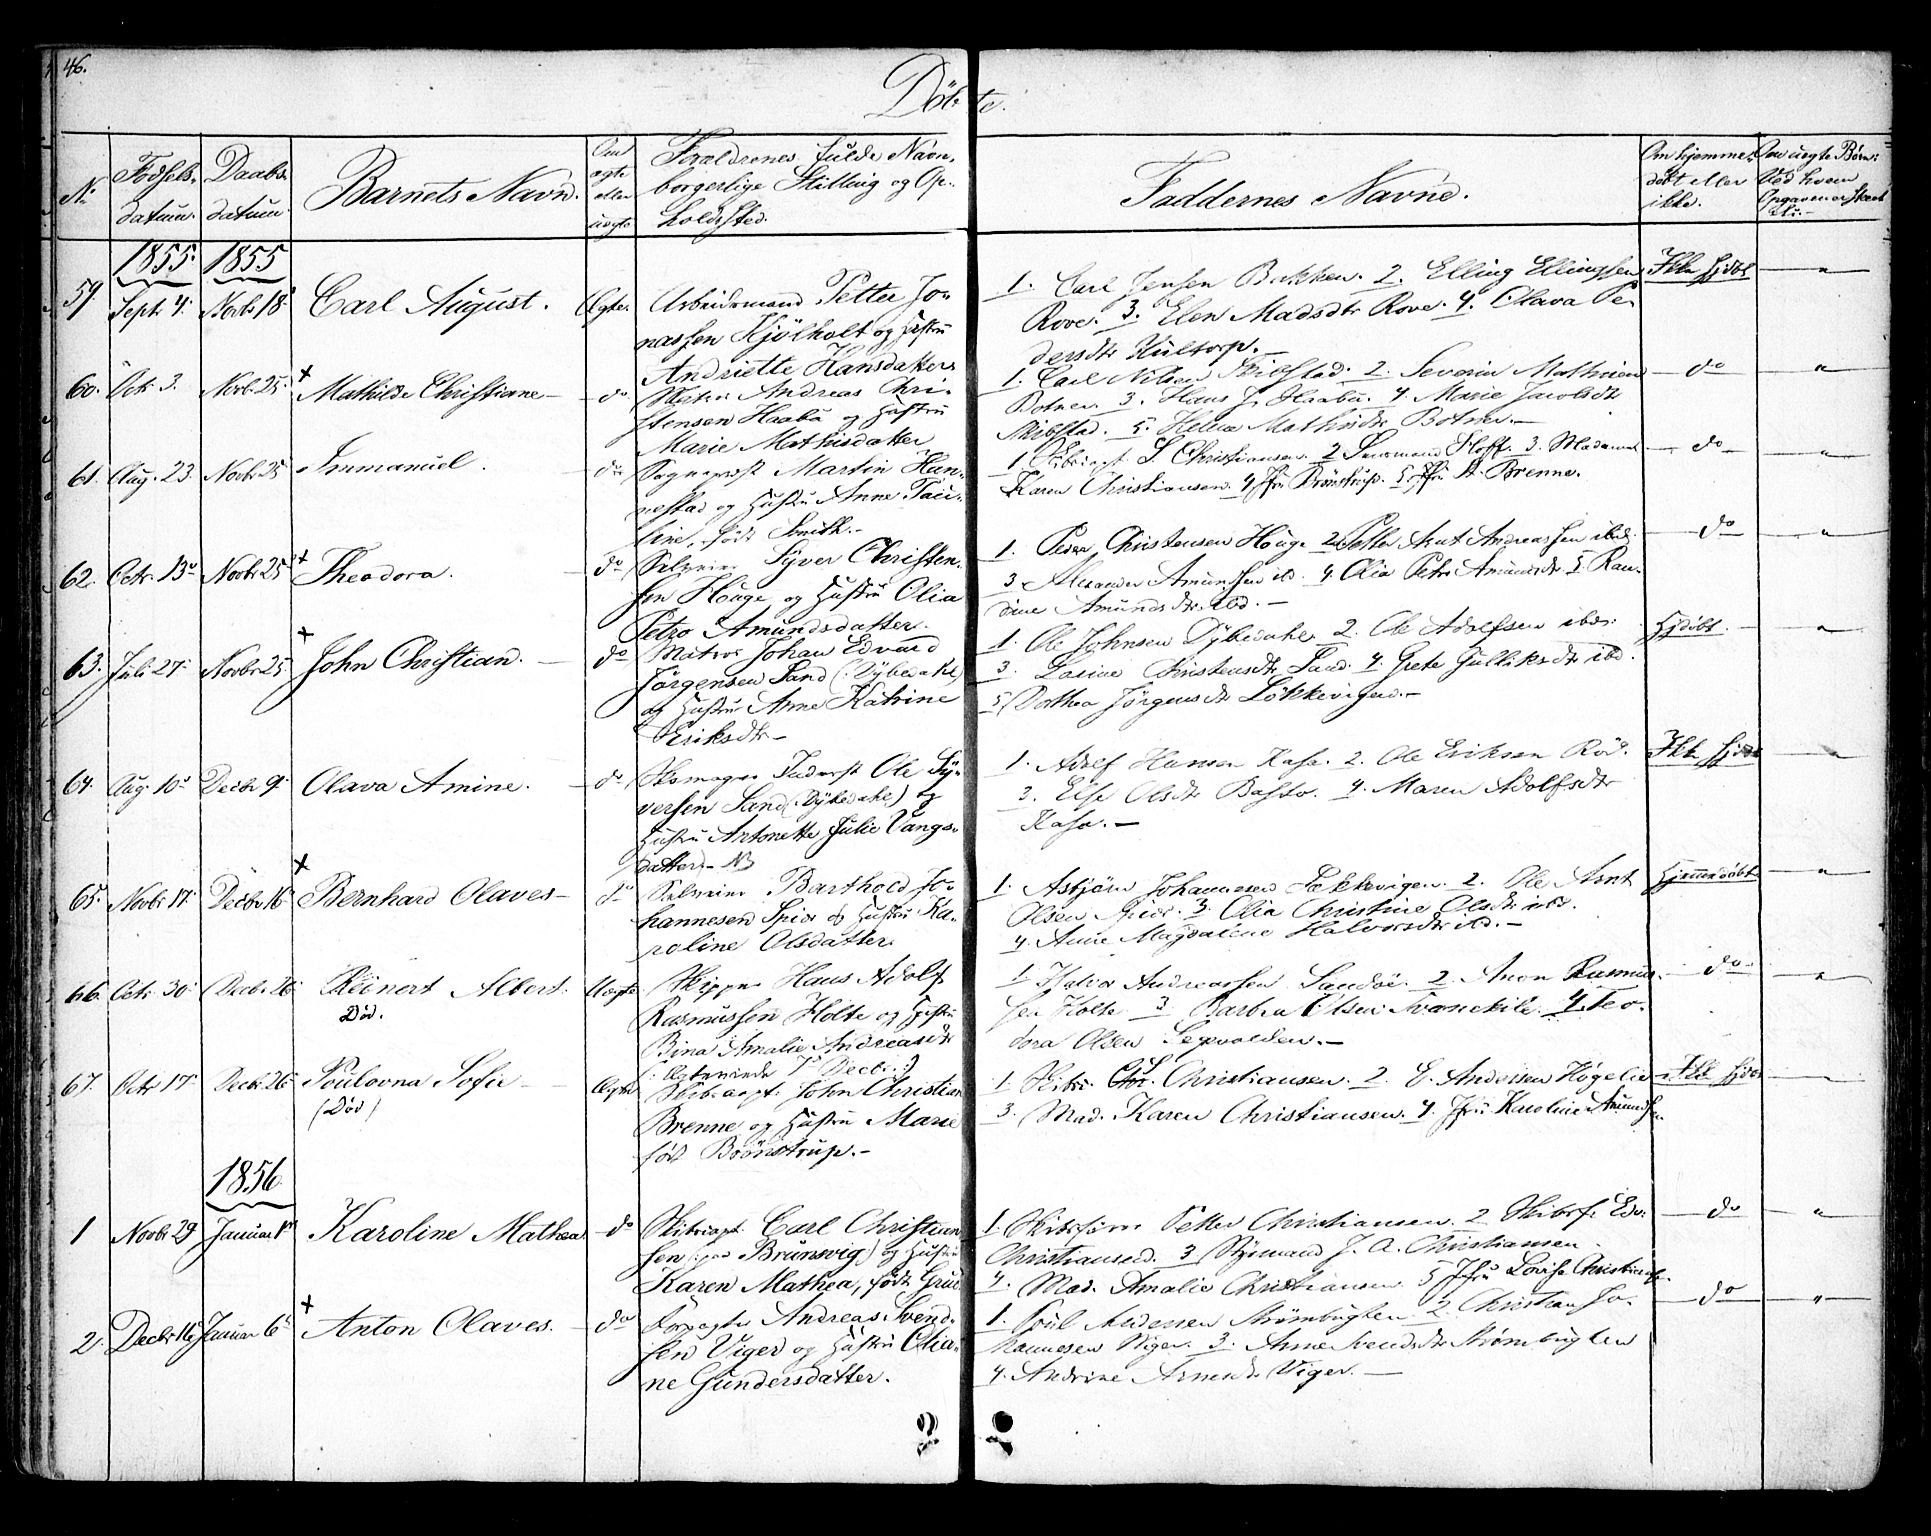 46.
Døbte.
No
Fødsels-
datum.
Daabs-
datum.
Barnets Navn.
Om
ægte
eller
uægte
Forældrenes fulde Navn,
borgerlige Stilling og Op-
holdssted.
Faddernes Navne.
Om hjemme-
døbt eller
ikke.
Om uægte Børn:
Ved hvem
Opgaven er skeet
1855. 1855
59 Septr 4. Novbr 18 Carl August. Ægte. Arbeidsmand Petter Jo-
nassen Kjölholt og Hustru
Andriette Hansdatter
1. Carl Jensen Bakken. 2. Elling Ellingsen
Rove. 3. Elen Madsdtr Rove. 4. Olava Pe-
dersdtr Hultorp.
Ikke hjdbt "
60. Octr 3. Novbr 25. + Mathilde Christiane do Andreas Chri-
stensen Haabu og Hustru
Marie Mathisdatter
1. Carl Nilsen Skibstad. 2. Severin Mathisen
Botner. 3. Hans J. Haabu. 4 Marie Jacobsdtr
Skibstad. 5. Helene Mathisdtr Botner.
do "
61. Aug. 23. Novbr 25 Immanuel. do Sogneprest Martin Hun-
nestad og Hustru Anne Pau-
line, født Smith.
1 Skibscapt. S. Christiansen. 2 Hoff. 3. Madame
Karen Christiansen. 4 Jfru Brönstrup. 5 Jfru A. Brenne.
do "
62. Octr. 13 Novbr 25 + Theodora. do Selveier Syver Christen-
sen Houge og Hustru Olia
Petro Amundsdatter.
1. Peder Christensen Houge 2. Petter Knut Andreassen ibd.
3. Alexander Amundsen ibd. 4. Olia Petro Amundsdtr 5. Ran-
dine Amundsdtr ibd.
do "
63. Juli 27. Novbr 25 + John Christian. do Matros Johan Edvard
Jörgensen Sand (: Dybedahl)
og Hustru Anne Katrine
Eriksdtr
1. Ole Johnsen Dybedahl 2. Ole Adolfsen ibd.
3. Christensdtr Sand. 4. Grete Gulliksdtr ibd.
5. Dorthea Jörgensdtr Lökkevigen.
Hjdöbt "
64. Aug. 10 Decbr 9. Olava Amine. do Skomager Ole Sy-
versen Sand (Dybedahl) og
Hustru Antonette Julie Vangs-
datter. NB
1. Adolf Hansen Kasa. 2. Ole Eriksen Röd.
3. Else Olsdtr Basto. 4. Maren Adolfsdtr
Kasa.
Ikke hjdbt "
65. Novbr 17. Decbr 16 + Bernhard Olaves do Selveier Barthold Jo-
hannesen Spiör og Hustru Ka-
roline Olsdatter.
1. Asbjörn Johannesen Lökkevigen. 2. Ole Arnt
Olsen Spiör. 3. Olia Christine Olsdtr ibd.
4. Anne Magdalene Halvorsdtr ibd.
Hjemmedöbt "
66. Octr 30. Decbr 26 Reinert Albert. Uægte Skipper Hans Adolf
Død.
Rasmussen Holte og Hustru
Bina Amalie Andreasdtr
(: Ægteviede 7 Decbr :)
1. Andreassen Sandöe. 2. Anon Rasmus-
sen Holte 3. Barbra Olsen Svanekile. 4. Teo-
dora Olsen
do "
67. Octr 17. Decbr 26 Poulovna Sofie Ægte Skibscapt. John Christian
(Død)
Brenne og Hustru Marie
født Brönstrup.
1. Christiansen. 2. E. Andersen Høgelie
3. Mad. Karen Christiansen. 4. Jfru Karoline Amundsen
Ikke hjdbt
1856.
1 Novbr 29 Januar 1 Karoline Mathea do Skibscapt. Carl Christian-
sen (paa Brunsvig) og Hustru
Karen Mathea, født Grue
1. Petter Christiansen. 2 Edv.
Christiansen. 3 Styrmand J. A. Christiansen.
4. Mad. Amalie Christiansen 5 Jfru Lovise Christiansen.
do "
2. Decbr 16 Januar 6 + Anton Olaves. do Forpagter Andreas Svend-
sen Viger og Hustru Olia-
ne Gundersdatter.
1. Poul Andersen Strömbugten 2. Christian Jo-
hannesen Viger. 3. Anne Svendsdtr Strömbugten
4. Andrine Arnesdtr Viger.
do "